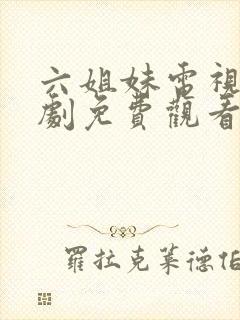 六姐妹電視
劇免費觀看
羅拉克萊德伯